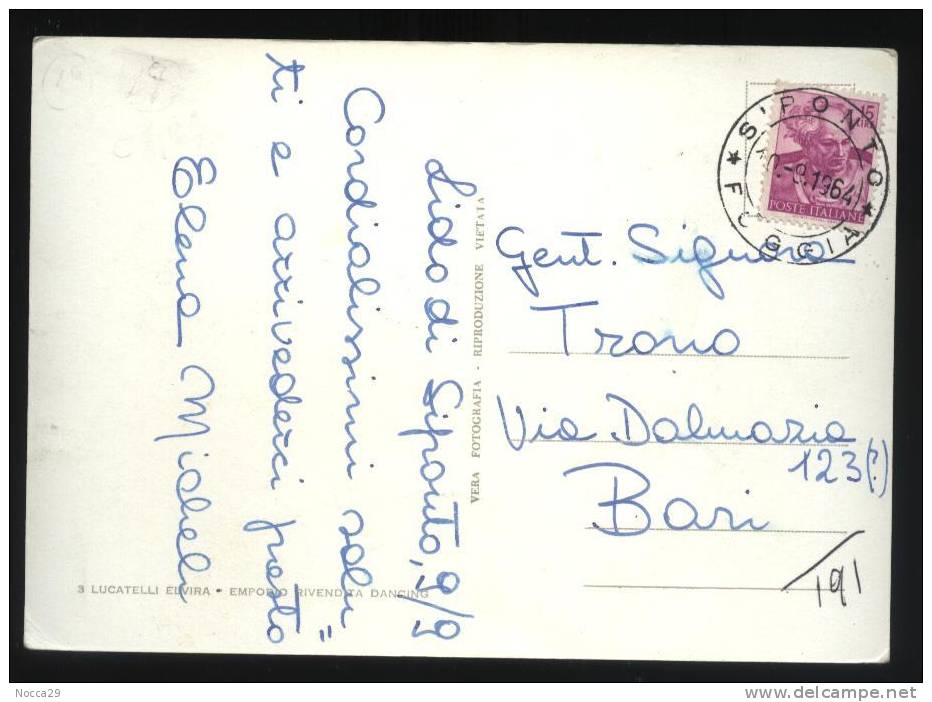 Lido di Siponto, 9/9
Cordialissimi salu=
ti e arrivederci presto
Elena Micheli
VERA FOTOGRAFIA - RIPRODUZIONE VIETATA
15
LIRE
POSTE ITALIANE
SIPONTO
-9.1964
★ FOGGIA ★
Gent. Signora
Trono
Via Dalmazia
123(?)
Bari
191
3 LUCATELLI ELVIRA - EMPORIO RIVENDITA DANCING
Nocca29
www.delcampe.net